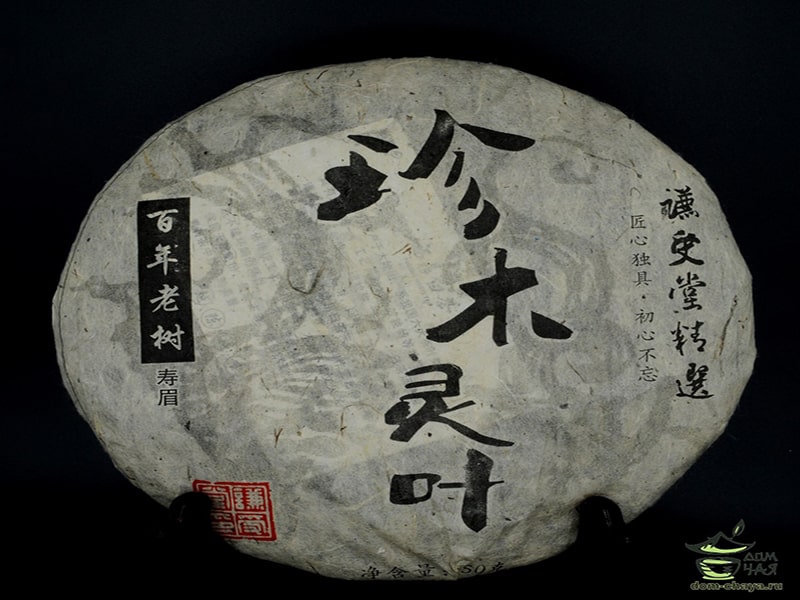 谦受堂精選
匠心独具·初心不忘
珍木灵叶
百年老树
寿眉
謙受
净含量:
ДОМ
ЧАЯ
dom-chaya.ru